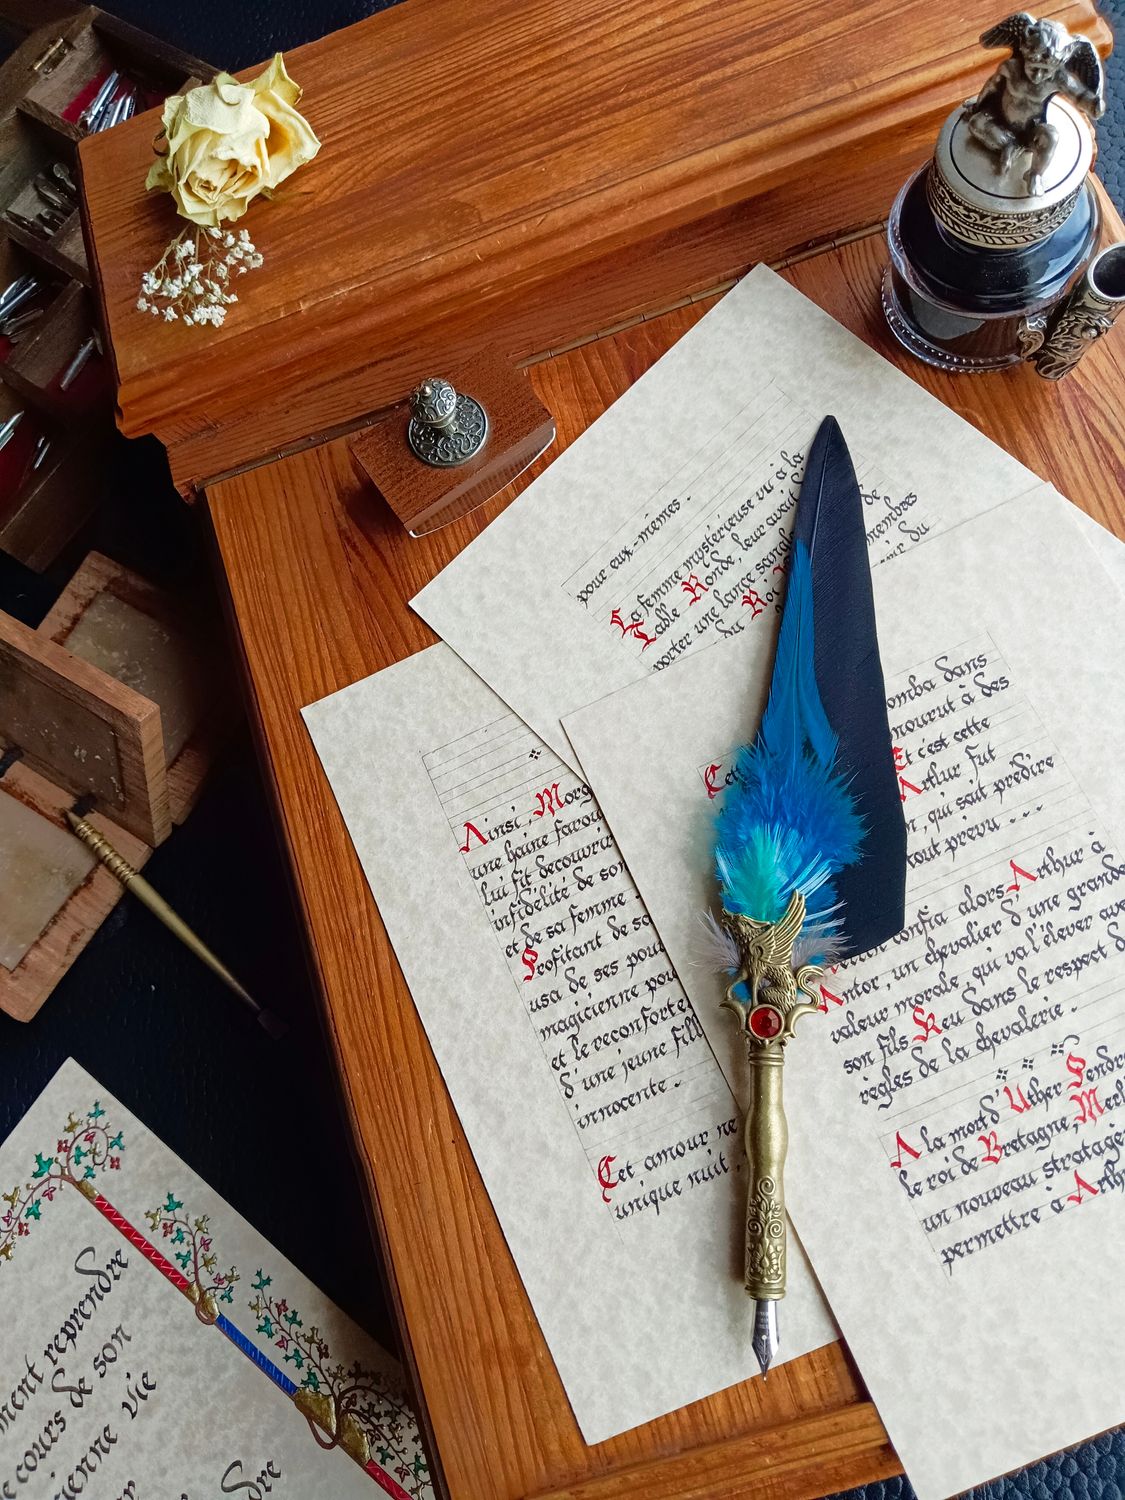 pour eux-mêmes.
La femme mystérieuse vu à la
Table Ronde, leur avait
de
membres
porter une lance sanglante
du
du Roi
Ainsi, Morg
une haine farou
lui fit découvrir
infidélité de son
et de sa femme.
Profitant de sa
usa de ses pouv
magicienne pour
et le réconforter
d'une jeune fille
innocente.
Cet amour ne
unique nuit,
Cet
omba dans
mourut à des
Et c'est cette
Arthur fut
n, qui sait prédire
tout prévu...
Merlin confia alors Arthur à
Antor, un chevalier d'une grande
valeur morale, qui va l'élever ave
son fils Keu dans le respect d
règles de la chevalerie.
A la mort d'Uther Pendr
le roi de Bretagne, Merl
un nouveau stratagè
permettre à Arth
ment reprendre
e cours de son
ienne vie